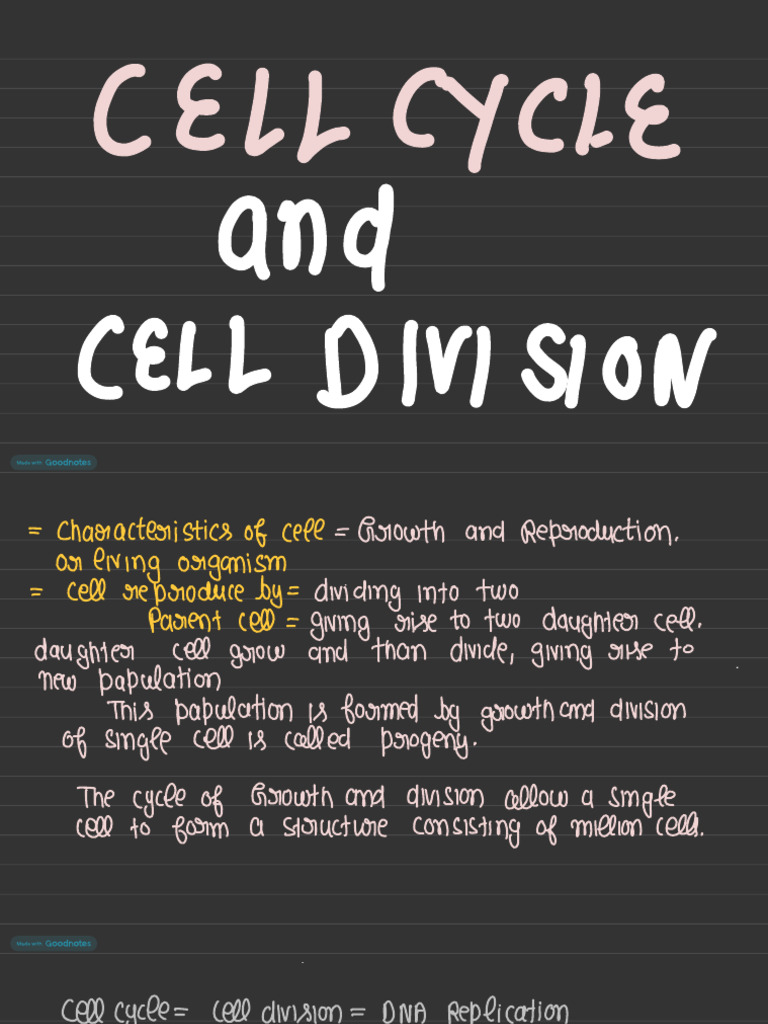 CELL CYCLE
and
CELL DIVISION
Made with Goodnotes
= Characteristics of cell = Growth and Reproduction.
or living organism
= cell reproduce by = dividing into two
Parent cell = giving rise to two daughter cell.
daughter cell grow and than divide, giving rise to
new papulation
This papulation is formed by growth and division
of single cell is called progeny.
The cycle of Growth and division allow a single
cell to form a structure consisting of million cells.
Made with Goodnotes
Cell cycle = cell division = DNA Replication